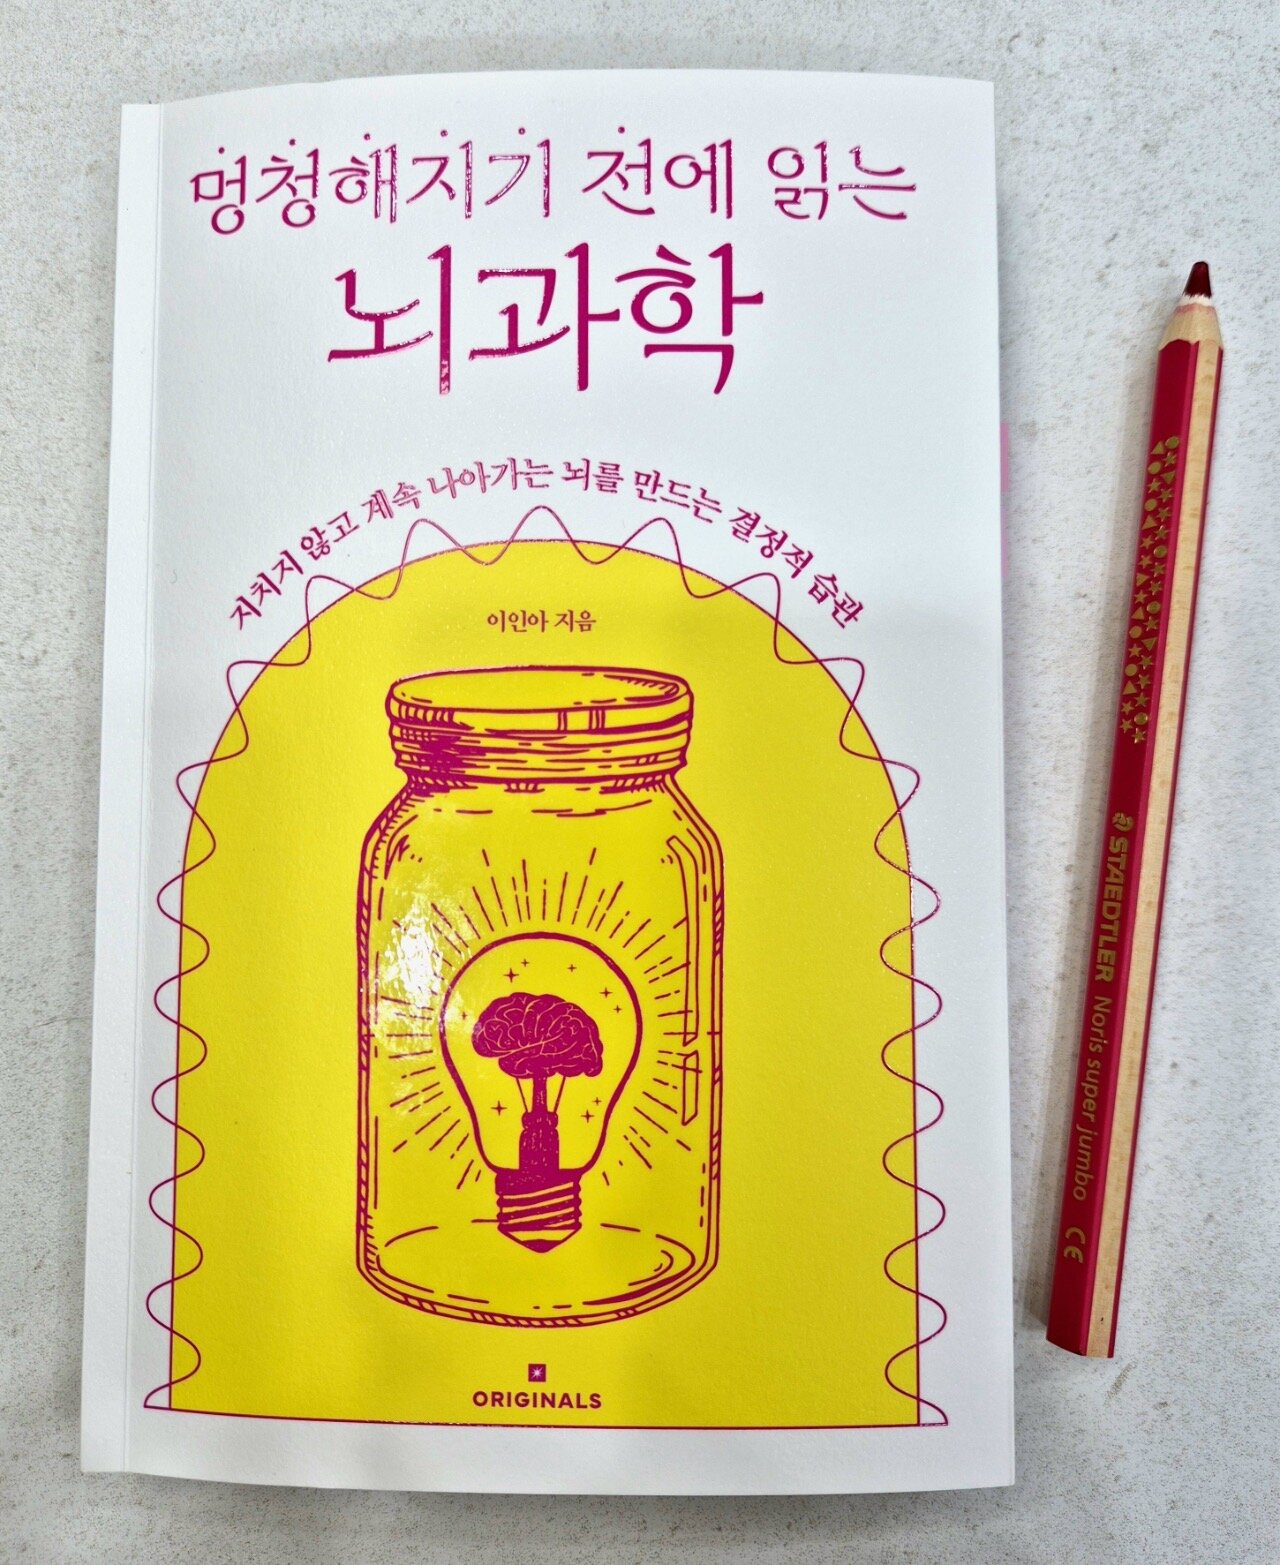 멍청해지기 전에 읽는
뇌과학
지치지 않고 계속 나아가는 뇌를 만드는 결정적 습관
이인아 지음
ORIGINALS
STAEDTLER Noris super jumbo CE